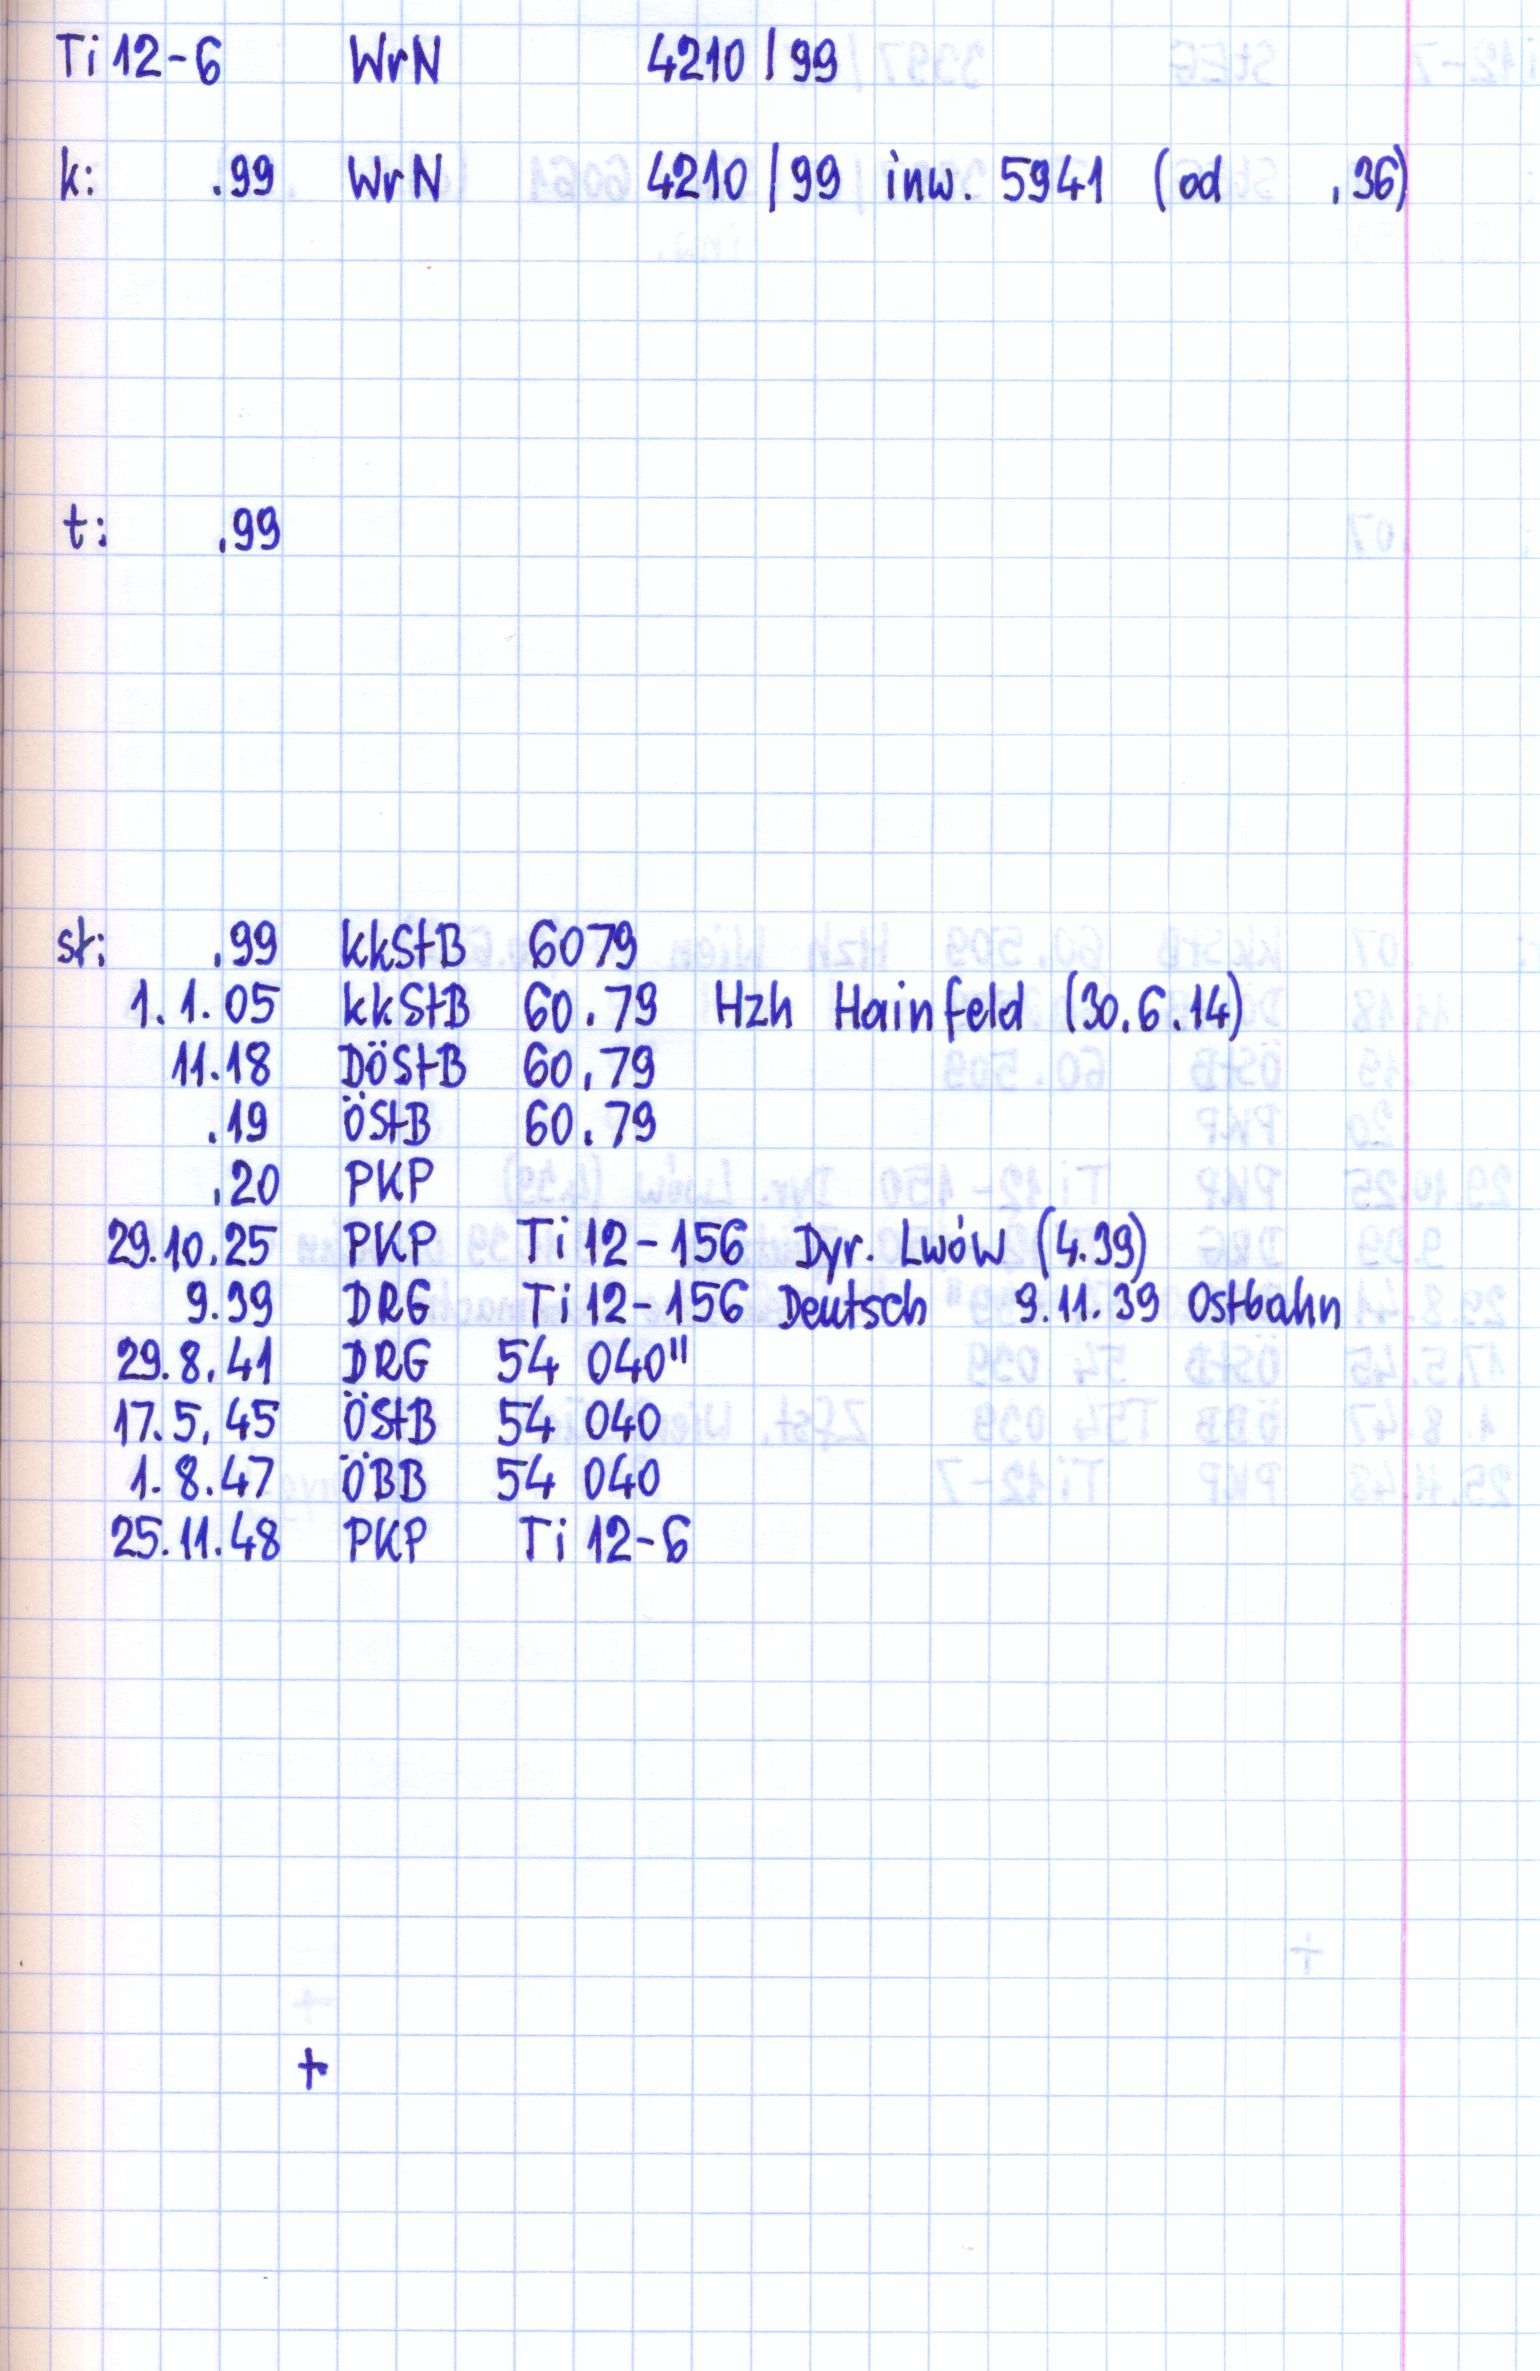 Ti 12-6 WrN 4210 / 99
k: .99 WrN 4210 / 99 inw. 5941 (od .36)
t: .99
st: .99 kkStB 6079
1.1.05 kkStB 60.79 Hzh Hainfeld (30.6.14)
11.18 DÖStB 60.79
.19 ÖStB 60.79
.20 PKP
29.10.25 PKP Ti 12-156 Dyr. Lwów (4.39)
9.39 DRG Ti 12-156 Deutsch 9.11.39 Ostbahn
29.8.41 DRG 54 040"
17.5.45 ÖStB 54 040
1.8.47 ÖBB 54 040
25.11.48 PKP Ti 12-6
+